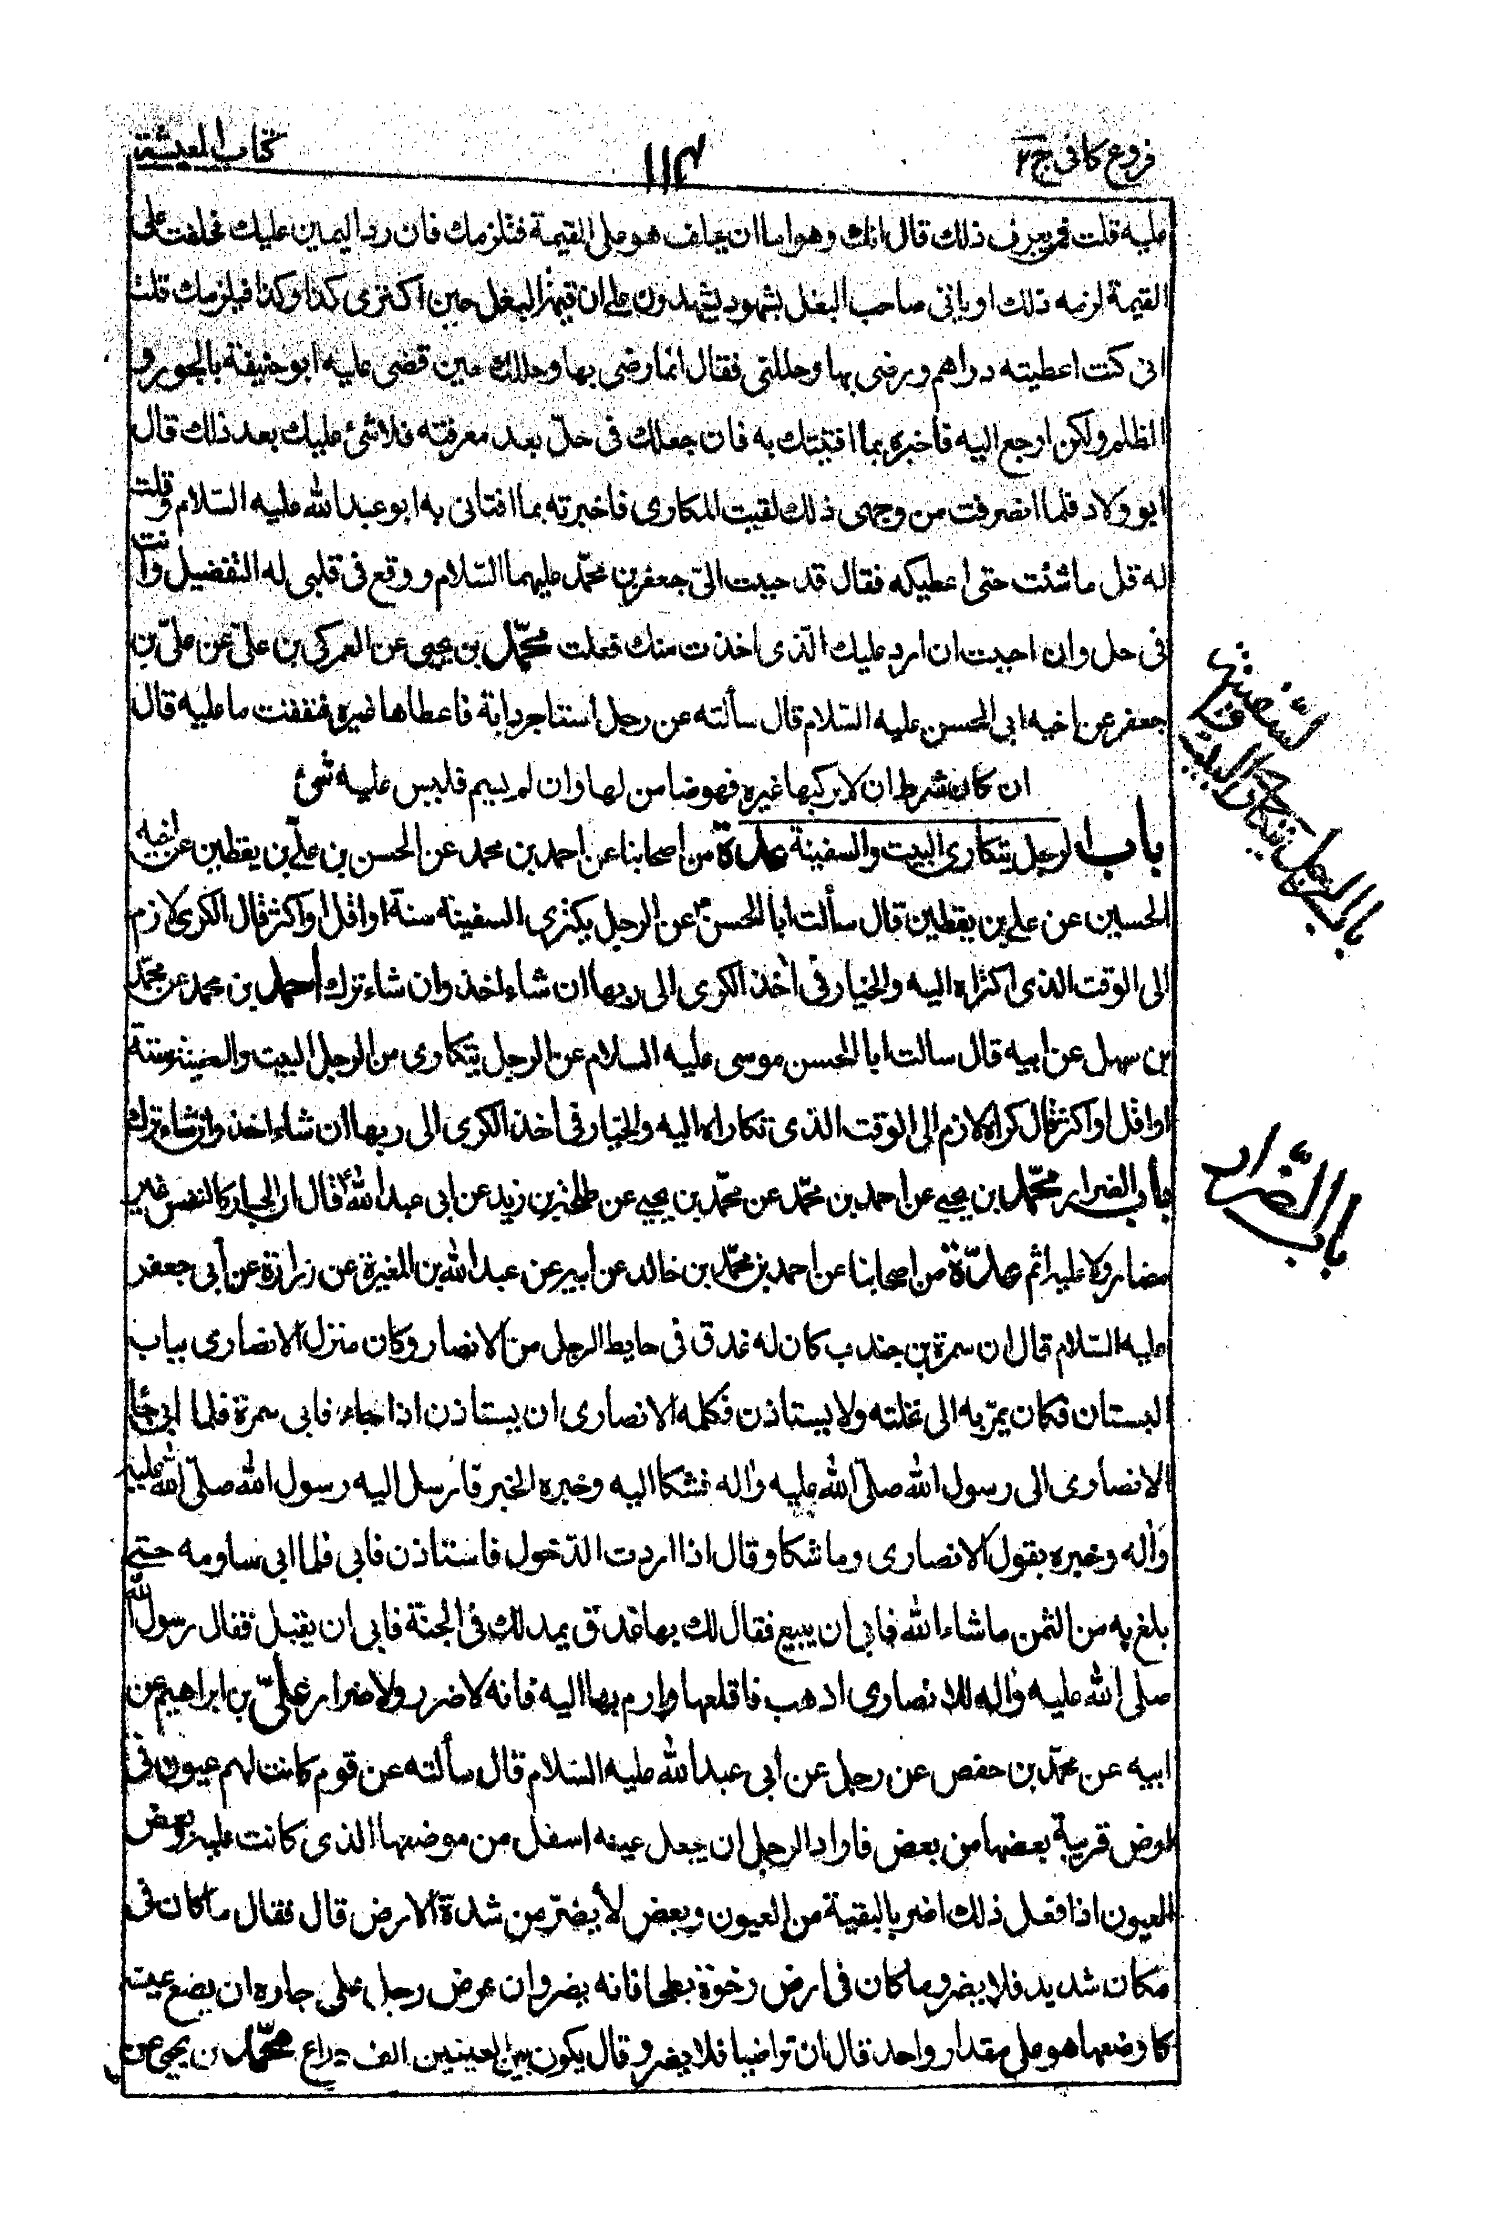 فروع كافى ج٢
١١٤
كتاب المعيشة
عليه قلت فمن يعرف ذلك قال انت وهو اما ان يحلف هو على القيمة فتلزمك فان رد اليمين عليك فحلفت على
القيمة لزمه ذلك او ياتى صاحب البغل بشهود يشهدون على ان قيمة البغل حين اكترى كذا وكذا فيلزمك قلت
انى كنت اعطيته دراهم ورضى بها وحللنى فقال انما رضى بها وحللك حين قضى عليه ابو حنيفة بالجور و
الظلم ولكن ارجع اليه فاخبره بما افتيتك به فان جعلك فى حل بعد معرفته فلا شئ عليك بعد ذلك قال
ابو ولاد فلما انصرفت من وجهى ذلك لقيت المكارى فاخبرته بما افتانى به ابو عبد الله عليه السلام وقلت
له قل ما شئت حتى اعطيكه فقال قد حببت الىّ جعفر بن محمّد عليهما السّلام ووقع فى قلبى له التفضيل وانت
فى حل وان احببت ان ارد عليك الّذى اخذت منك فعلت محمّد بن يحيى عن العمركى بن علىّ عن علىّ بن
جعفر عن اخيه ابى الحسن عليه السّلام قال سألته عن رجل استاجر دابة فاعطاها غيره فنفقت ما عليه قال
ان كان شرط ان لا يركبها غيره فهو ضامن لها وان لم يسم فليس عليه شئ
باب الرجل يتكارى البيت والسفينة عدة من اصحابنا عن احمد بن محمد عن الحسن بن علىّ بن يقطين عن اخيه
الحسين عن على بن يقطين قال سألت ابا الحسن ع عن الرجل يكترى السفينة سنة او اقل او اكثر قال الكرى لازم
الى الوقت الذى اكتراه اليه والخيار فى اخذ الكرى الى ربها ان شاء اخذ وان شاء ترك احمد بن محمد عن محمّد
بن سهل عن ابيه قال سالت ابا الحسن موسى عليه السلام عن الرجل يتكارى من الرجل البيت والسفينة سنة
او اقل او اكثر قال كراه لازم الى الوقت الذى تكاراه اليه والخيار فى اخذ الكرى الى ربها ان شاء اخذ وان شاء ترك
باب الضرار محمّد بن يحيى عن احمد بن محمّد عن محمّد بن يحيى عن طلحة بن زيد عن ابى عبد الله ع قال ان الجار كالنفس غير
مضار ولا عليه اثم عدّة من اصحابنا عن احمد بن محمّد بن خالد عن ابيه عن عبد الله بن المغيرة عن زرارة عن ابى جعفر
عليه السّلام قال ان سمرة بن جندب كان له عذق فى حايط الرجل من الانصار وكان منزل الانصارى بباب
البستان فكان يمرّ به الى نخلته ولا يستاذن فكلمه الانصارى ان يستاذن اذا جاء فابى سمرة فلما ابى جاء
الانصارى الى رسول الله صلّى الله عليه واله فشكا اليه وخبره الخبر فارسل اليه رسول الله صلّى الله عليه
واله وخبره بقول الانصارى وما شكا وقال اذا اردت الدّخول فاستاذن فابى فلما ابى ساومه حتى
بلغ به من الثمن ما شاء الله فابى ان يبيع فقال لك بها عذق يمد لك فى الجنة فابى ان يقبل فقال رسول الله
صلى الله عليه واله للانصارى اذهب فاقلعها وارم بها اليه فانه لا ضرر ولا ضرار علىّ بن ابراهيم عن
ابيه عن محمّد بن حفص عن رجل عن ابى عبد الله عليه السّلام قال سألته عن قوم كانت لهم عيون فى
ارض قريبة بعضها من بعض فاراد الرجل ان يجعل عينه اسفل من موضعها الذى كانت عليه وبعض
العيون اذا فعل ذلك اضر بالبقية من العيون وبعض لا يضرّ من شدة الارض قال فقال ما كان فى
مكان شديد فلا يضر وما كان فى ارض رخوة بطحا فانه يضر وان عرض رجل على جاره ان يضع عينه
كما وضعها هو على مقدار واحد قال ان تراضيا فلا يضر وقال يكون بين العينين الف ذراع محمّد بن يحيى عن
باب الرجل يتكارى البيت
والسّفينة
باب الضّرار